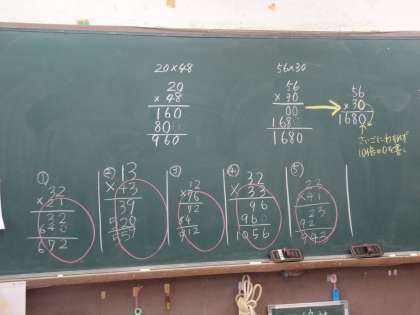 20×48
20
×48
160
80
960
56×30
56
×30
00
168
1680
56
×30
1680
さいごにわすれず
10倍の0を書く
①
32
×21
32
640
672
②
13
×43
39
520
559
③
12
×76
72
84
912
④
32
×33
96
960
1056
⑤
23
×41
23
92
943